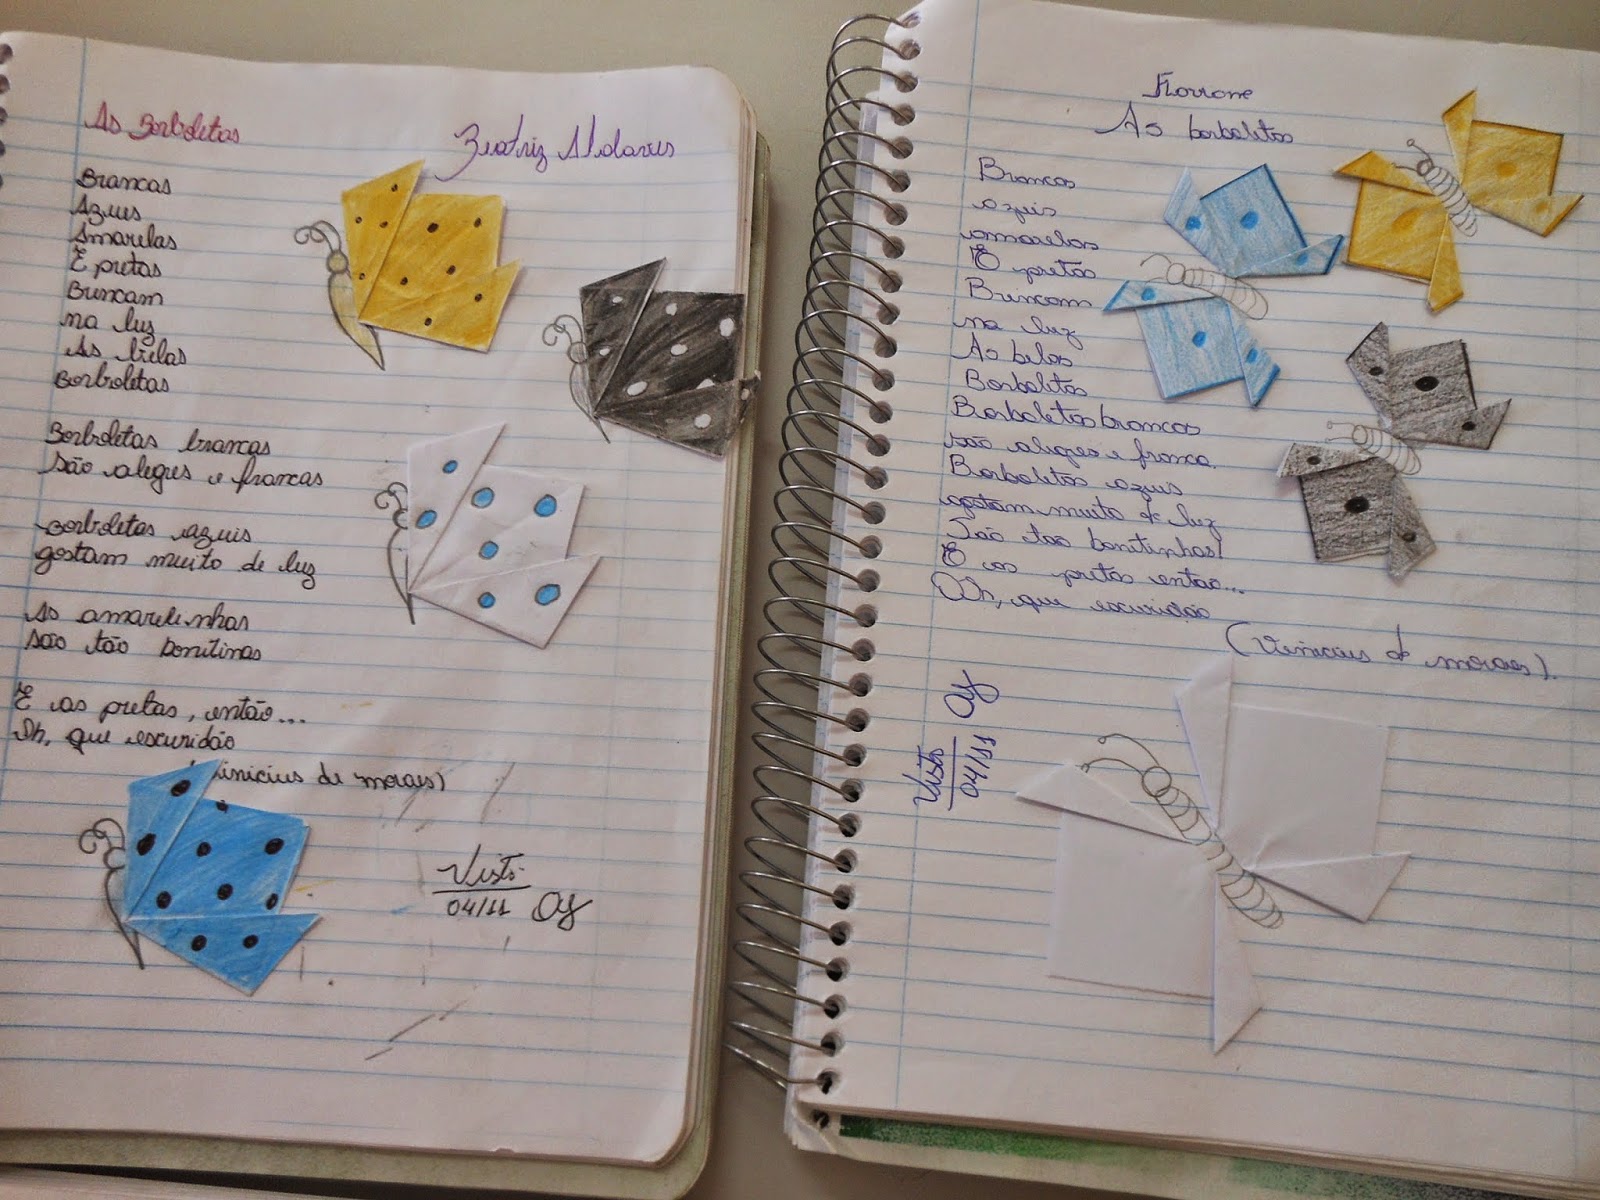 As Borboletas
Beatriz
Brancas
Azuis
Amarelas
E pretas
Brincam
na luz
As belas
Borboletas
Borboletas brancas
são alegres e francas
Borboletas azuis
gostam muito de luz
As amarelinhas
são tão bonitinas
E as pretas, então...
Oh, que escuridão
(Vinicius de morais)
Visto
04/11
As borboletas
Brancas
azuis
amarelas
E pretas
Brincam
na luz
As belas
Borboletas
Borboletas brancas
são alegres e franca.
Borboletas azuis
gostam muito de luz
São tao bonitinhas!
E as pretas entao...
Oh, que escuridão
(Vinicius de moraes).
Visto
04/11